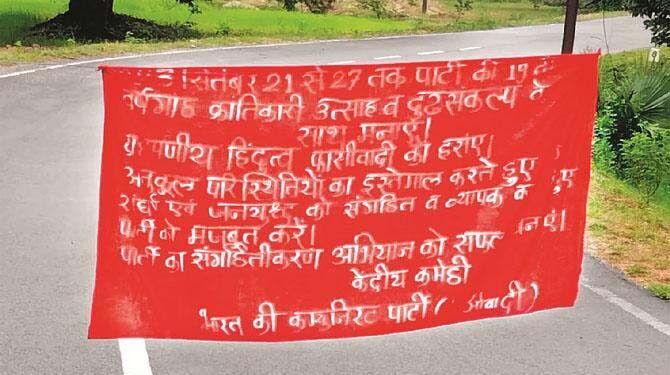 सितंबर 21 से 27 तक पार्टी की 19
क्रांतिकारी उत्साह व दृढ़संकल्प
साथ मनाएं।
हिंदुत्व फासीवादी को हराएं।
अनुकूल परिस्थितियों का इस्तेमाल करते हुए
एवं जनयुद्ध को संगठित व व्यापक
पार्टी को मजबूत करें।
पार्टी का संगठितीकरण अभियान को सफल
केंद्रीय कमेटी
भारत की कम्युनिस्ट पार्टी (